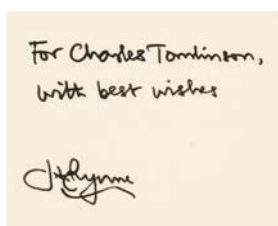 For Charles Tomlinson,
with best wishes
JHPrynne